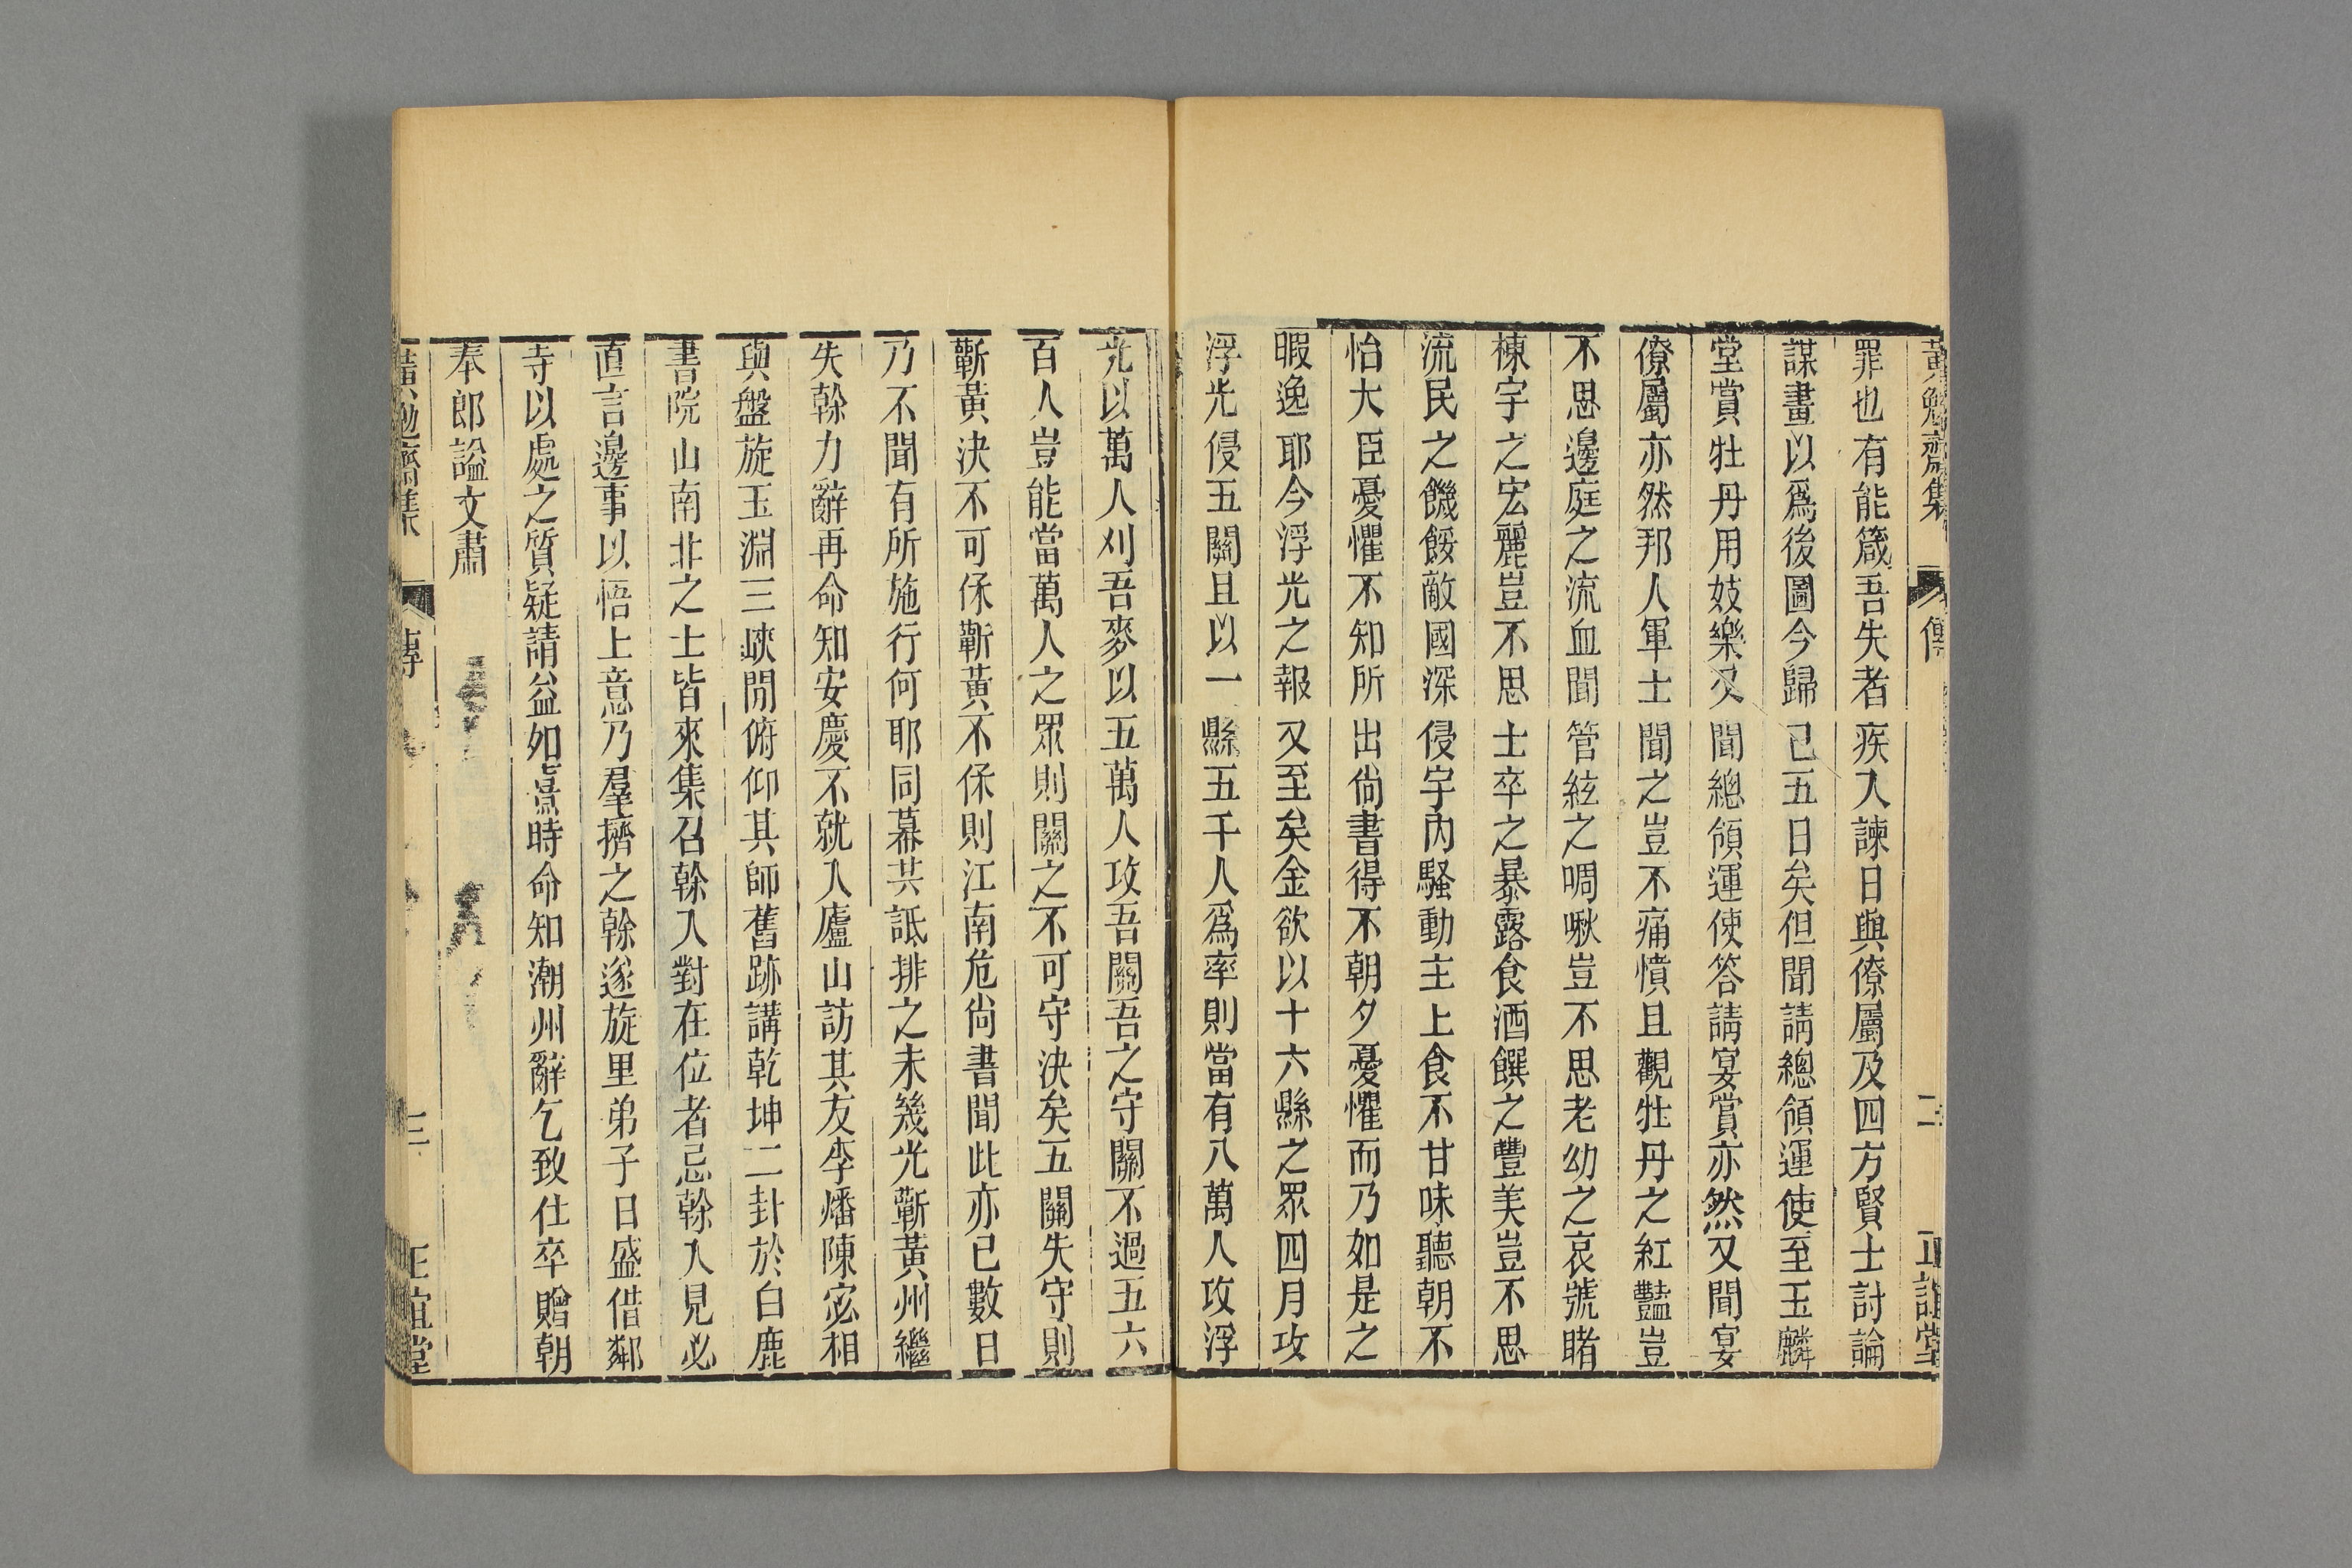 黃勉齋集 傳 二 正誼堂
罪也有能箴吾失者疾入諫日與僚屬及四方賢士討論
謀畫以爲後圖今歸已五日矣但聞請總領運使至玉麟
堂賞牡丹用妓樂又聞總領運使答請宴賞亦然又聞宴
僚屬亦然邦人軍士聞之豈不痛憤且觀牡丹之紅豔豈
不思邊庭之流血聞管絃之啁啾豈不思老幼之哀號睹
棟宇之宏麗豈不思士卒之暴露食酒饌之豐美豈不思
流民之饑餒敵國深侵宇內騷動主上食不甘味聽朝不
怡大臣憂懼不知所出尙書得不朝夕憂懼而乃如是之
暇逸耶今浮光之報又至矣金欲以十六縣之眾四月攻
浮光侵五關且以一縣五千人爲率則當有八萬人攻浮
光以萬人刈吾麥以五萬人攻吾關吾之守關不過五六
百人豈能當萬人之眾則關之不可守決矣五關失守則
蘄黃決不可保蘄黃不保則江南危尙書聞此亦已數日
乃不聞有所施行何耶同幕共詆排之未幾光蘄黃州繼
失榦力辭再命知安慶不就入廬山訪其友李燔陳宓相
與盤旋玉淵三峽閒俯仰其師舊跡講乾坤二卦於白鹿
書院山南北之士皆來集召榦入對在位者忌榦入見必
直言邊事以悟上意乃羣擠之榦遂旋里弟子日盛借鄰
寺以處之質疑請益如熹時命知潮州辭乞致仕卒贈朝
奉郎諡文肅
黃勉齋集 傳 三 正誼堂